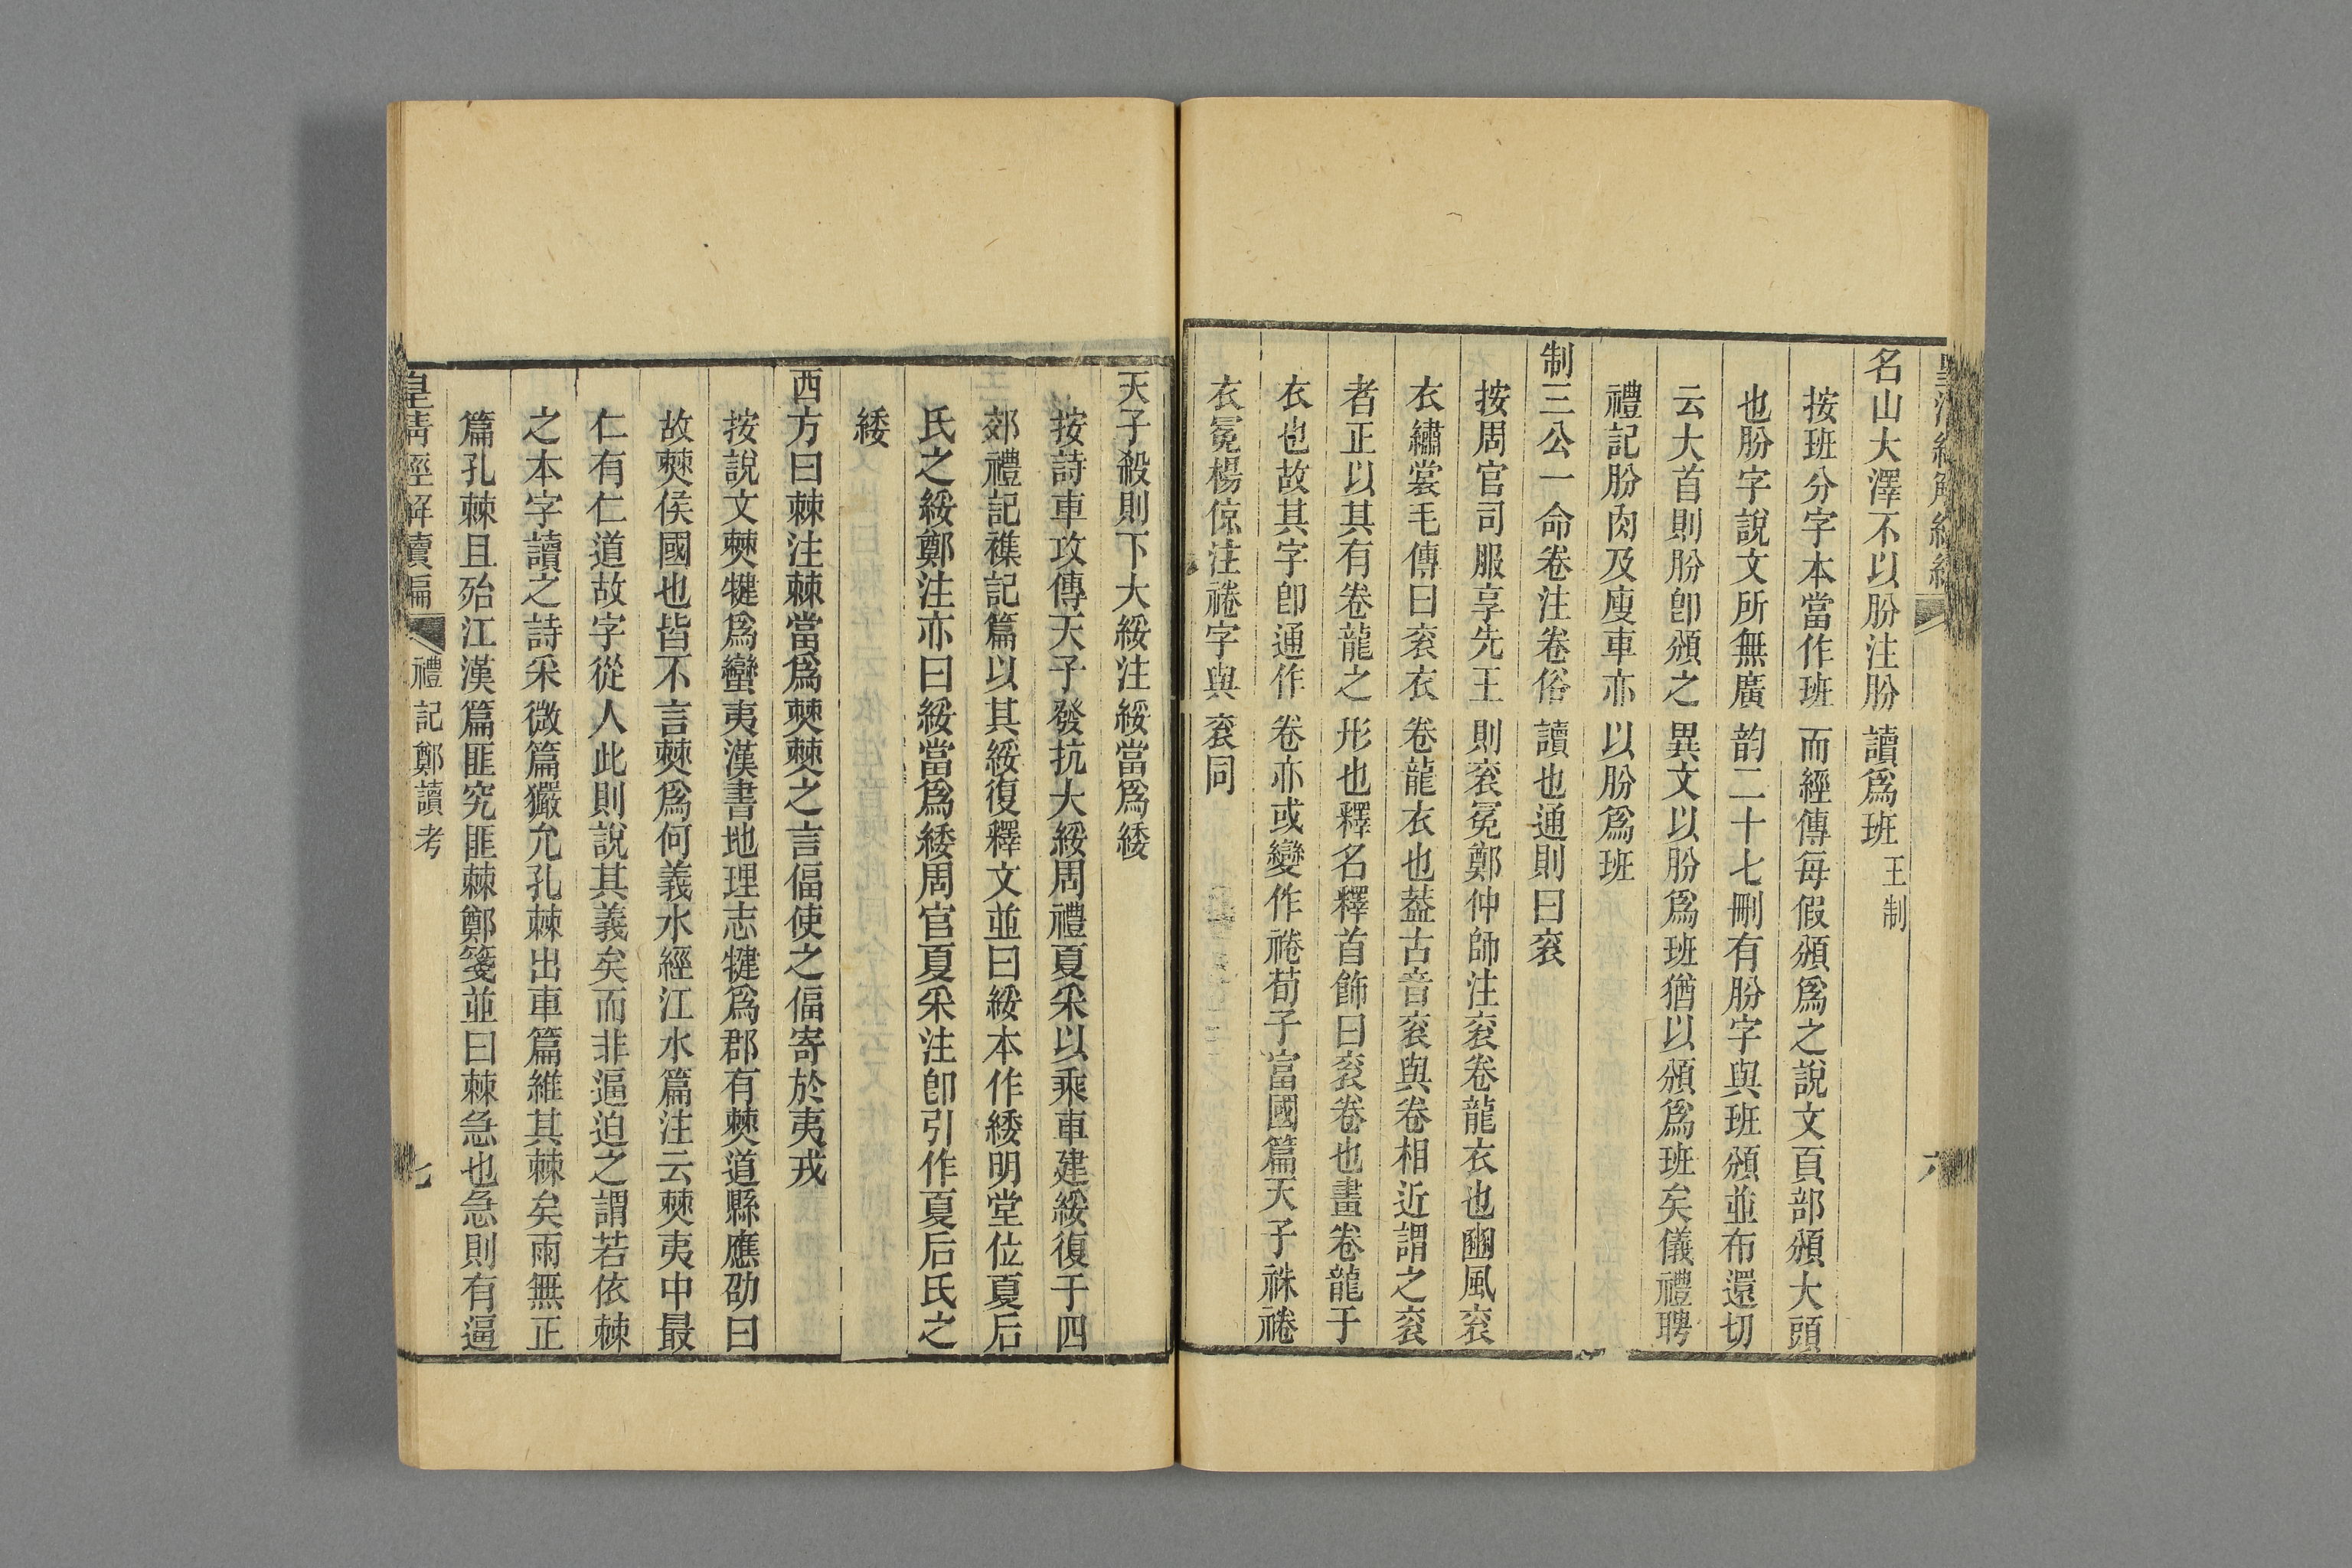 名山大澤不以朌注朌讀爲班王制
按班分字本當作班而經傳每假頒爲之說文頁部頒大頭
也朌字說文所無廣韵二十七刪有朌字與班頒並布還切
云大首則朌卽頒之異文以朌爲班猶以頒爲班矣儀禮聘
禮記朌肉及廋車亦以朌爲班
制三公一命卷注卷俗讀也通則曰袞
按周官司服享先王則袞冕鄭仲師注袞卷龍衣也豳風袞
衣繡裳毛傳曰袞衣卷龍衣也葢古音袞與卷相近謂之袞
者正以其有卷龍之形也釋名釋首飾曰袞卷也畫卷龍于
衣也故其字卽通作卷亦或變作裷荀子富國篇天子袾裷
衣冕楊倞注裷字與袞同
天子殺則下大綏注綏當爲緌
按詩車攻傳天子發抗大綏周禮夏采以乘車建綏復于四
郊禮記襍記篇以其綏復釋文並曰綏本作緌明堂位夏后
氏之綏鄭注亦曰綏當爲緌周官夏采注卽引作夏后氏之
緌
西方曰棘注棘當爲僰僰之言偪使之偪寄於夷戎
按說文僰犍爲蠻夷漢書地理志犍爲郡有僰道縣應劭曰
故僰侯國也皆不言僰爲何義水經江水篇注云僰夷中最
仁有仁道故字從人此則說其義矣而非逼迫之謂若依棘
之本字讀之詩采微篇玁允孔棘出車篇維其棘矣雨無正
篇孔棘且殆江漢篇匪究匪棘鄭箋並曰棘急也急則有逼
皇清經解續編 禮記鄭讀考 七